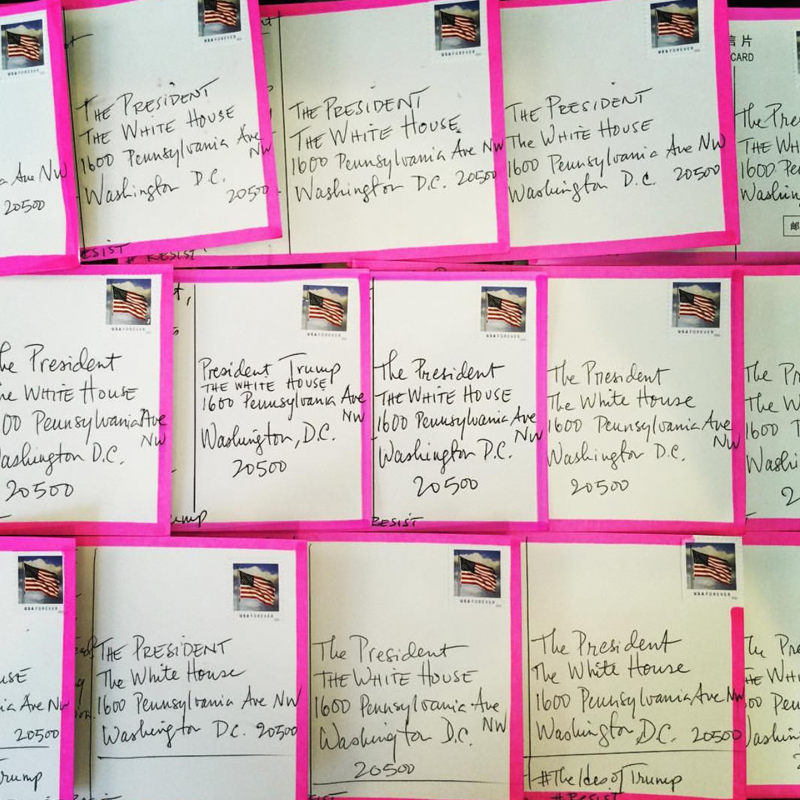 a Ave NW
20500
THE PRESIDENT
THE WHITE HOUSE
1600 Pennsylvania Ave
NW
Washington D.C.
20500
ESIST
# RESIST
THE PRESIDENT
THE WHITE HOUSE
1600 Pennsylvania Ave NW
Washington D.C. 20500
THE PRESIDENT
The WHITE HOUSE
1600 Pennsylvania Ave NW
Washington D.C. 20500
信片
CARD
The Pres
THE WH
1600 Pe
Washin
邮
he President
he WHITE HOUSE
00 Pennsylvania Ave
NW
ashington D.C.
20500
President Trump
THE WHITE HOUSE
1600 Pennsylvania Ave
NW
Washington, D.C.
20500
ump
The President
THE WHITE HOUSE
1600 Pennsylvania Ave
NW
Washington D.C.
20500
RESIST
The President
The White House
1600 Pennsylvania Ave
NW
Washington D.C.
20500
The Pr
The W
1600 P
Washi
20
USE
ia Ave NW
20500
rump
THE PRESIDENT
The White House
1600 Pennsylvania Ave NW
Washington D.C. 20500
The President
THE WHITE HOUSE
1600 Pennsylvania Ave
NW
Washington D.C.
20500
The President
The White House
1600 Pennsylvania Ave NW
Washington D.C. 20500
#TheIdesofTrump
#RESIST
The Pr
THE WHI
1600 Penn
ashin
2
USA FOREVER
USA FOREVER
USA FOREVER
USA FOREVER
USA FOREVER
USA FOREVER
USA FOREVER
USA FOREVER
USA FOREVER
USA FOREVER
USA FOREVER
USA FOREVER